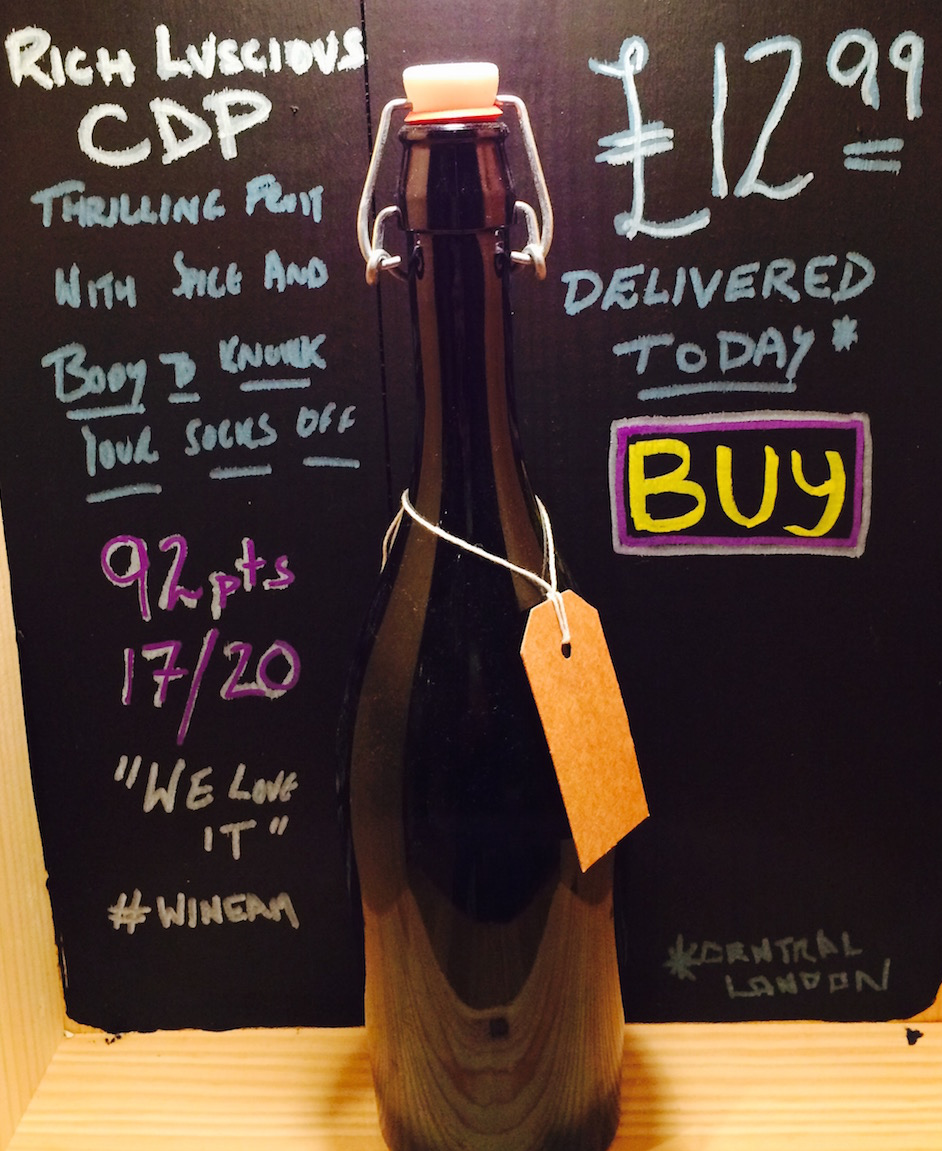 RICH LUSCIOUS
CDP
THRILLING FRUIT
WITH SPICE AND
BODY TO KNOCK
YOUR SOCKS OFF
92pts
17/20
"WE LOVE
IT"
#WINEAM
£12.99
DELIVERED
TODAY*
BUY
*CENTRAL
LONDON